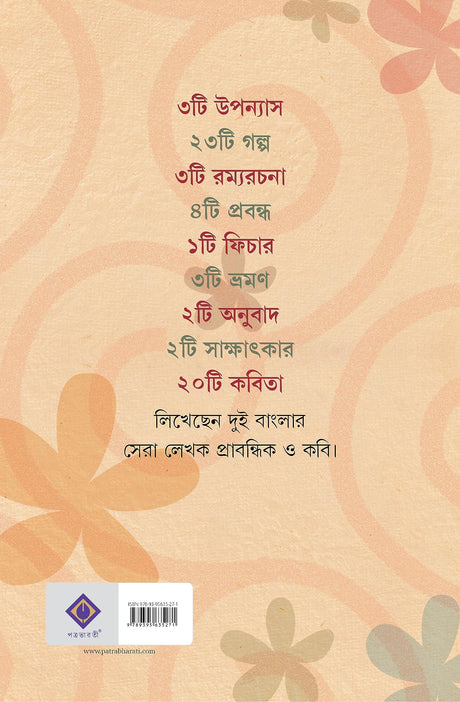 ৩টি উপন্যাস
২৩টি গল্প
৩টি রম্যরচনা
৪টি প্রবন্ধ
১টি ফিচার
৩টি ভ্রমণ
২টি অনুবাদ
২টি সাক্ষাৎকার
২০টি কবিতা
লিখেছেন দুই বাংলার
সেরা লেখক প্রাবন্ধিক ও কবি।
পত্রভারতী®
www.patrabharati.com
9 789395 635271